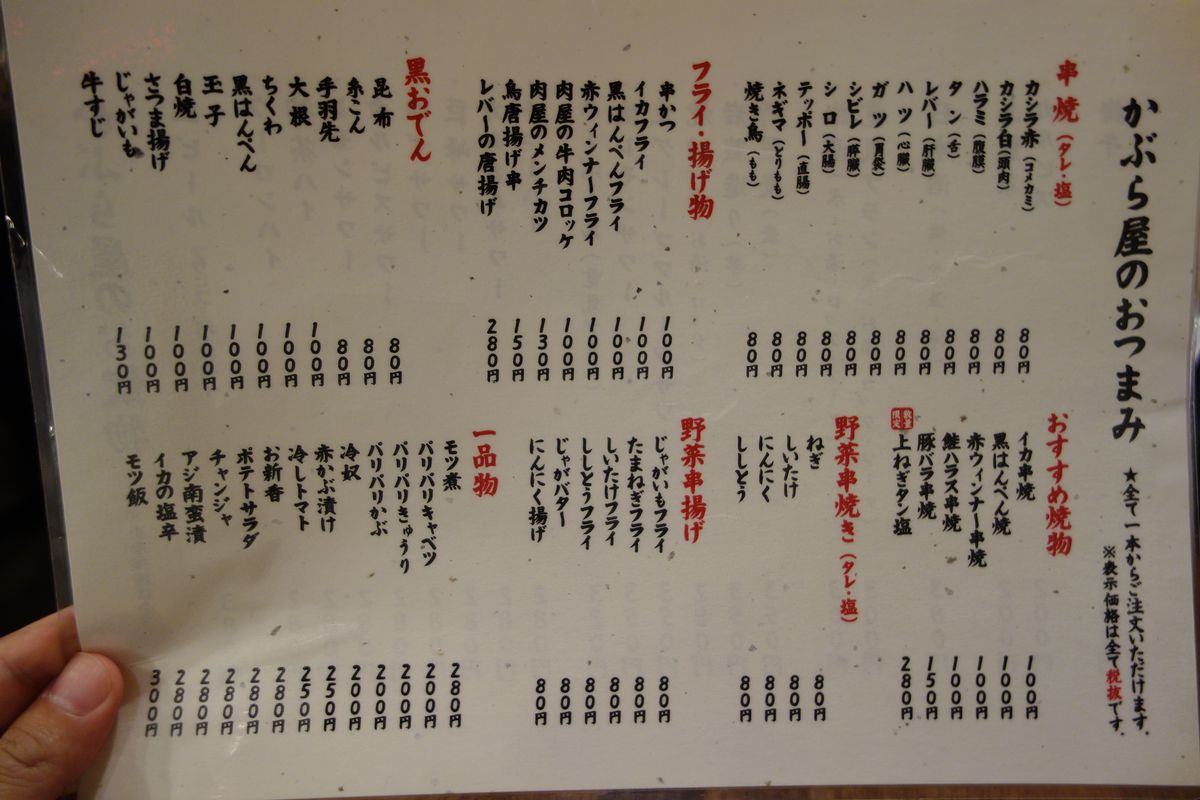 かぶら屋のおつまみ
★全て一本からご注文いただけます。
※表示価格は全て税抜です。
串焼(タレ・塩)
カシラ赤(コメカミ) 80円
カシラ白(頭肉) 80円
ハラミ(腹膜) 80円
タン(舌) 80円
レバー(肝臓) 80円
ハツ(心臓) 80円
ガツ(胃袋) 80円
シビレ(膵臓) 80円
シロ(大腸) 80円
テッポー(直腸) 80円
ネギマ(とりもも) 80円
焼き鳥(もも) 80円
フライ・揚げ物
串かつ 100円
イカフライ 100円
黒はんぺんフライ 100円
赤ウィンナーフライ 100円
肉屋の牛肉コロッケ 100円
肉屋のメンチカツ 130円
鳥唐揚げ串 150円
レバーの唐揚げ 280円
黒おでん
昆布 80円
糸こん 80円
手羽先 80円
大根 100円
ちくわ 100円
黒はんぺん 100円
玉子 100円
白焼 100円
さつま揚げ 100円
じゃがいも 100円
牛すじ 130円
おすすめ焼物
イカ串焼 100円
黒はんぺん焼 100円
赤ウィンナー串焼 100円
鮭ハラス串焼 100円
豚バラ串焼 150円
数量限定 上ねぎタン塩 280円
野菜串焼き(タレ・塩)
ねぎ 80円
しいたけ 80円
にんにく 80円
ししとう 80円
野菜串揚げ
じゃがいもフライ 80円
たまねぎフライ 80円
しいたけフライ 80円
ししとうフライ 80円
じゃがバター 80円
にんにく揚げ 80円
一品物
モツ煮 280円
パリパリキャベツ 200円
パリパリきゅうり 200円
パリパリかぶ 200円
冷奴 200円
赤かぶ漬け 250円
冷しトマト 250円
お新香 280円
ポテトサラダ 280円
チャンジャ 280円
アジ南蛮漬 280円
イカの塩辛 280円
モツ飯 300円